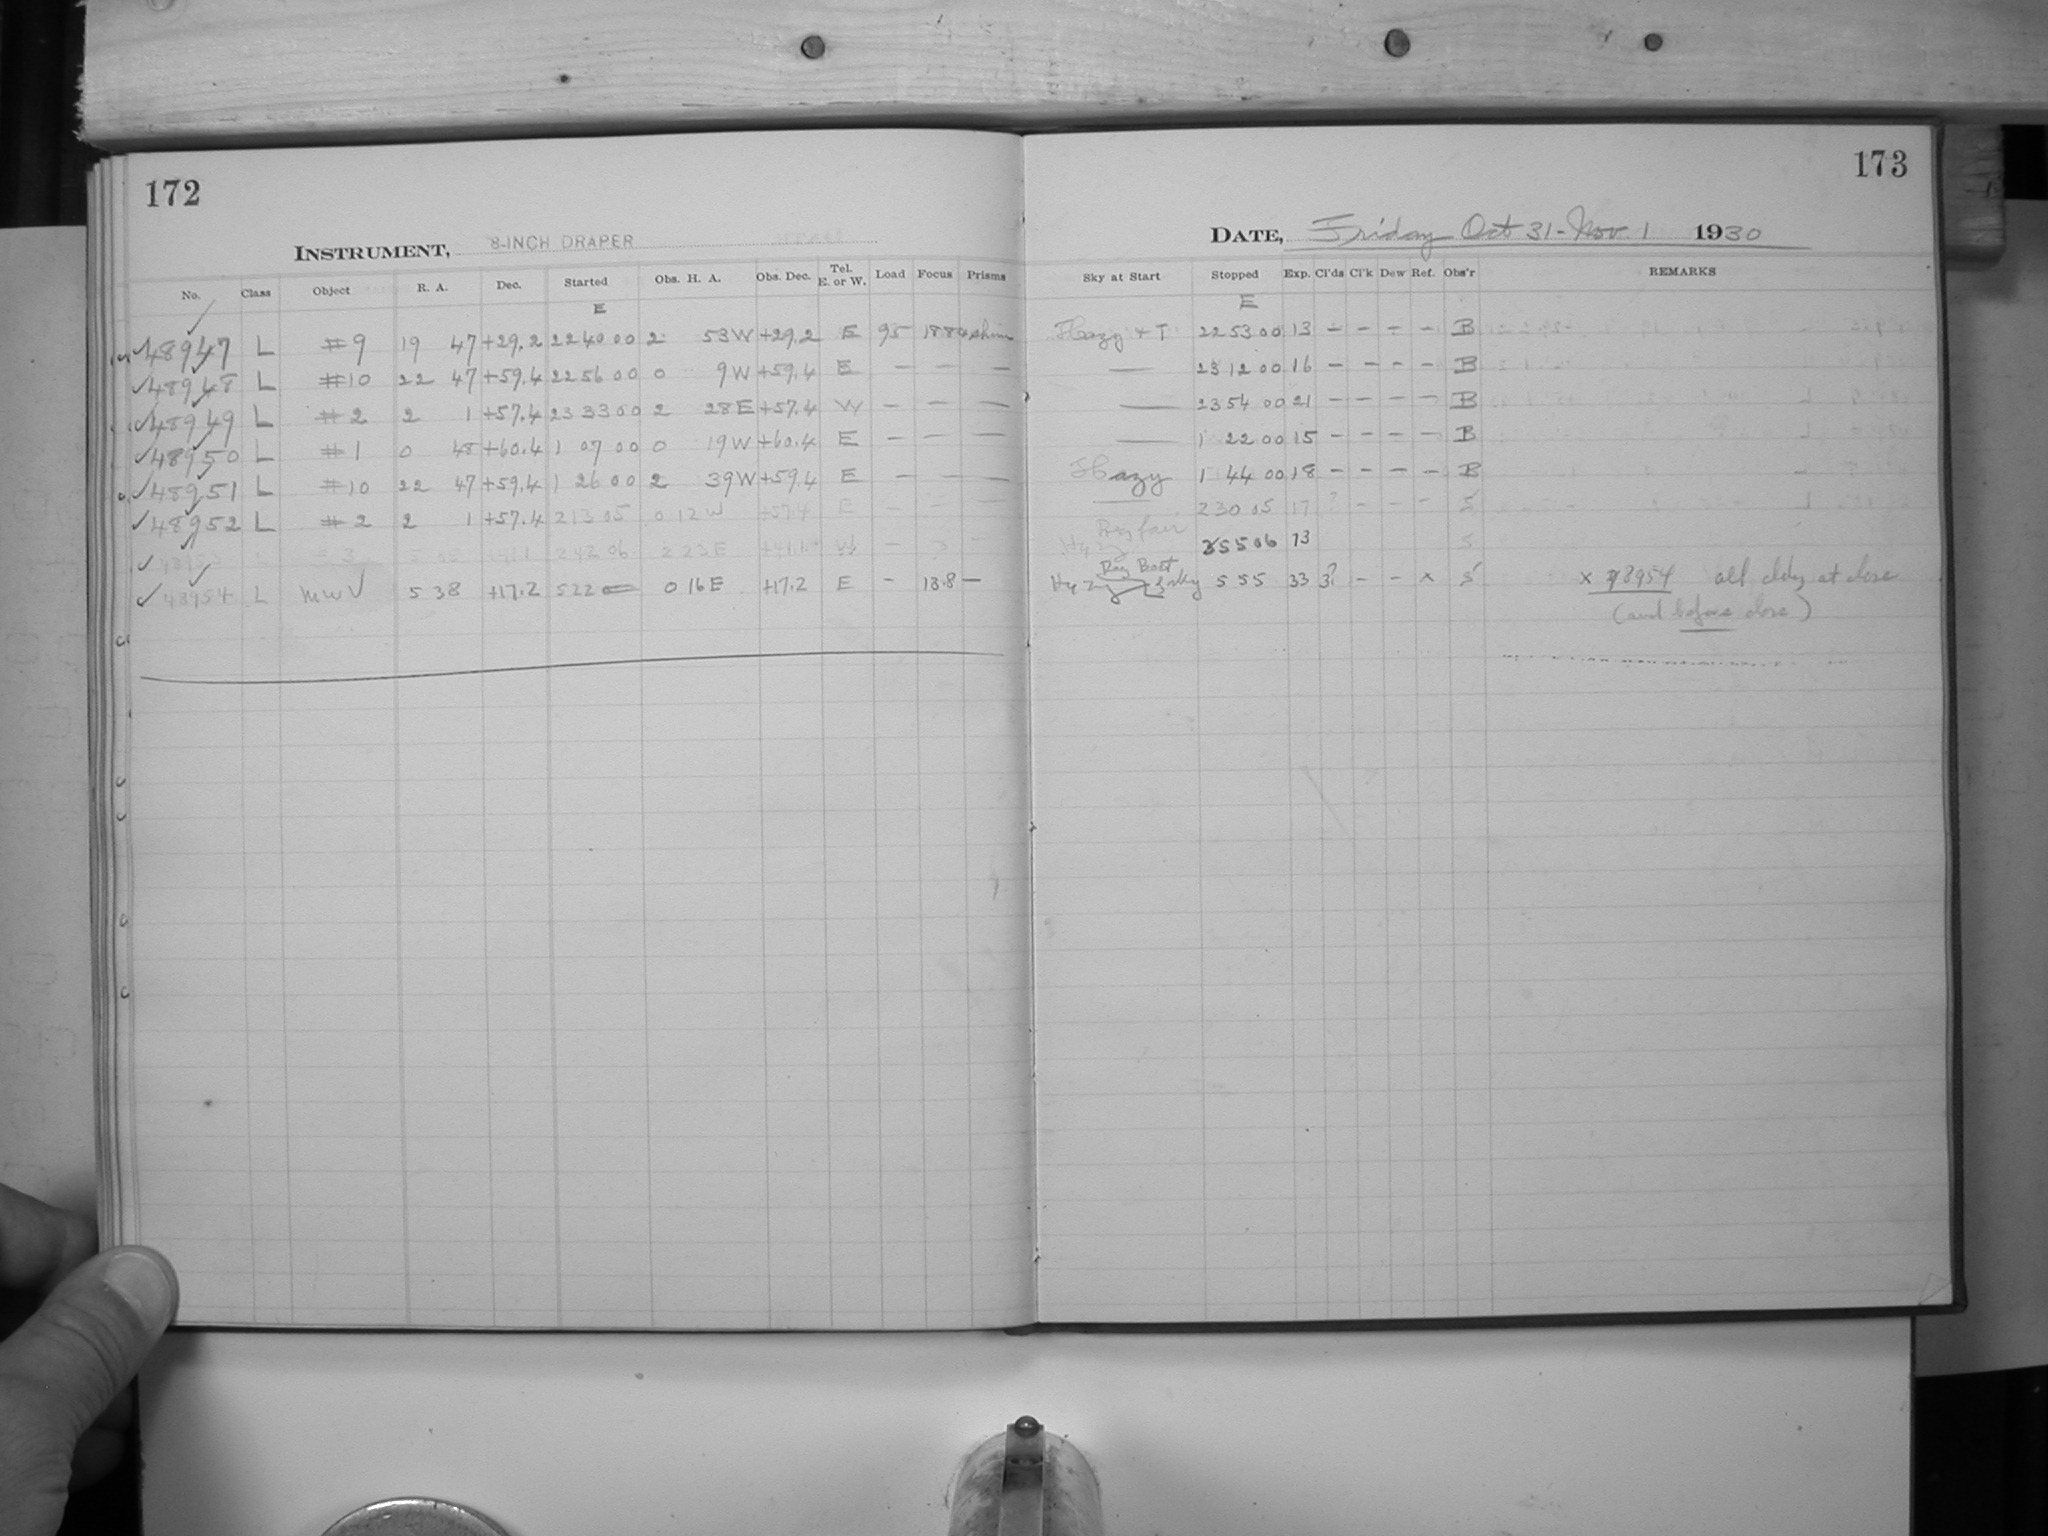 172
INSTRUMENT, 8-INCH DRAPER
No. Class Object R. A. Dec. Started Obs. H. A. Obs. Dec. Tel. E. or W. Load Focus Prisms
E
48947 L #9 19 47 +29.2 22 40 00 2 53 W +29.2 E 95
48948 L #10 22 47 +59.4 22 56 00 0 9 W +59.4 E — — —
48949 L #2 2 1 +57.4 23 33 00 2 28 E +57.4 W — — —
48950 L #1 0 48 +60.4 1 07 00 0 19 W +60.4 E — — —
48951 L #10 22 47 +59.4 1 26 00 2 39 W +59.4 E — — —
48952 L #2 2 1 +57.4 2 13 05 0 12 W +57.4 E — — —
48953 3 2 42 06 2 23 E W —
48954 L MWV 5 38 +17.2 5 22 0 16 E +17.2 E — 13.8 —
173
DATE, Friday Oct 31 - Nov. 1 1930
Sky at Start Stopped Exp. Cl'ds Cl'k Dew Ref. Obs'r REMARKS
E
Hazy + T 22 53 00 13 – – – – B
— 23 12 00 16 – – – – B
— 23 54 00 21 – – – – B
— 1 22 00 15 – – – – B
Hazy 1 44 00 18 – – – – B
— 2 30 05 17 ? – – – S
Hazy fair 3 55 06 73 S
Hazy 5 55 33 3? – – x S x 48954 all cldy at close
(and before close)